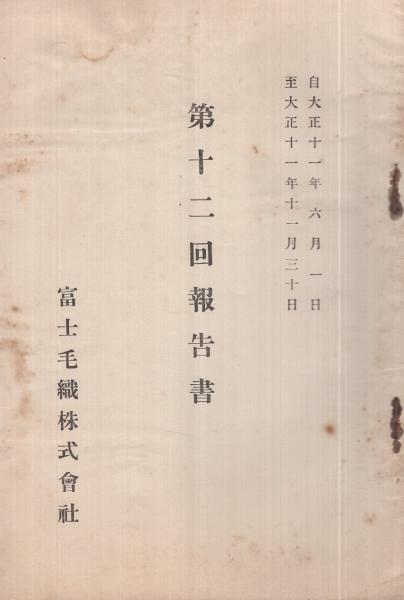 自大正十一年六月一日
至大正十一年十一月三十日
第十二回報告書
富士毛織株式會社